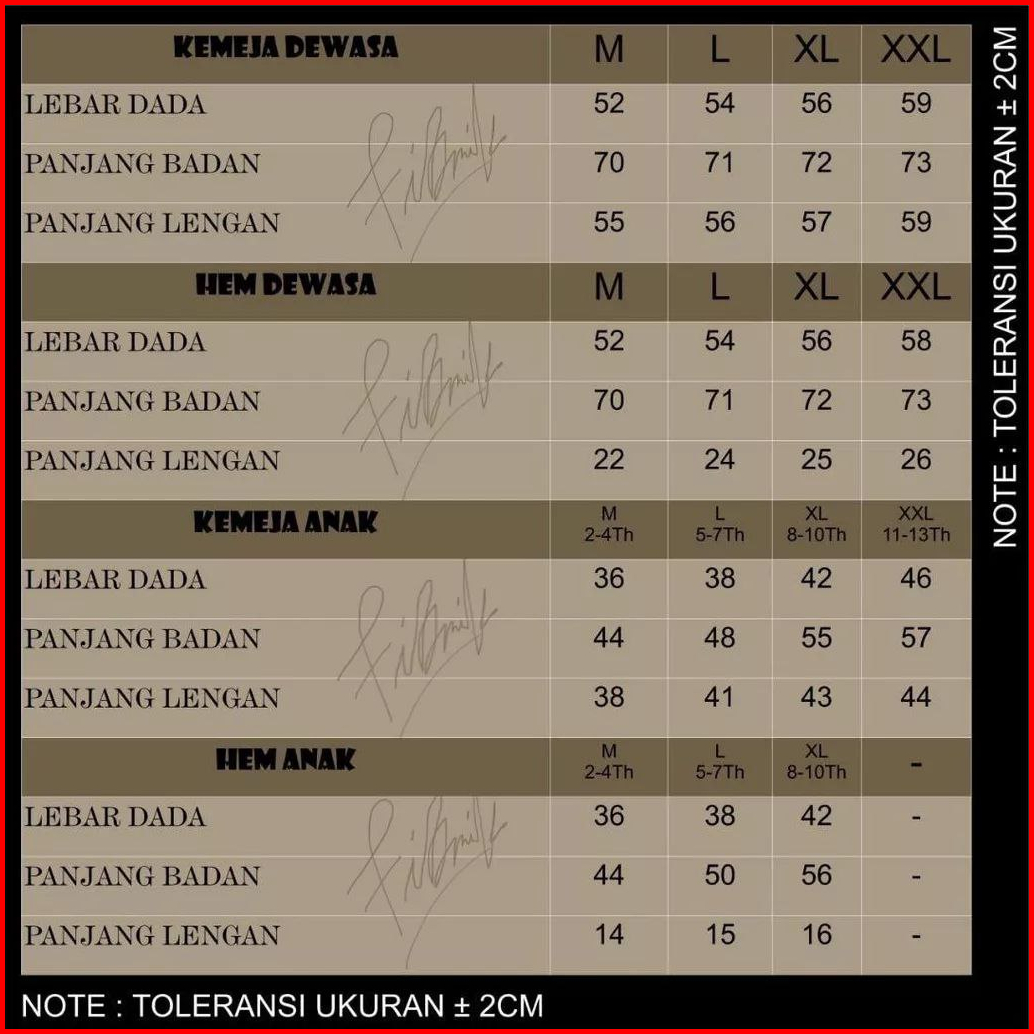 KEMEJA DEWASA M L XL XXL
LEBAR DADA 52 54 56 59
PANJANG BADAN 70 71 72 73
PANJANG LENGAN 55 56 57 59
HEM DEWASA M L XL XXL
LEBAR DADA 52 54 56 58
PANJANG BADAN 70 71 72 73
PANJANG LENGAN 22 24 25 26
KEMEJA ANAK M L XL XXL
2-4Th 5-7Th 8-10Th 11-13Th
LEBAR DADA 36 38 42 46
PANJANG BADAN 44 48 55 57
PANJANG LENGAN 38 41 43 44
HEM ANAK M L XL -
2-4Th 5-7Th 8-10Th
LEBAR DADA 36 38 42 -
PANJANG BADAN 44 50 56 -
PANJANG LENGAN 14 15 16 -
NOTE : TOLERANSI UKURAN ± 2CM
NOTE : TOLERANSI UKURAN ± 2CM